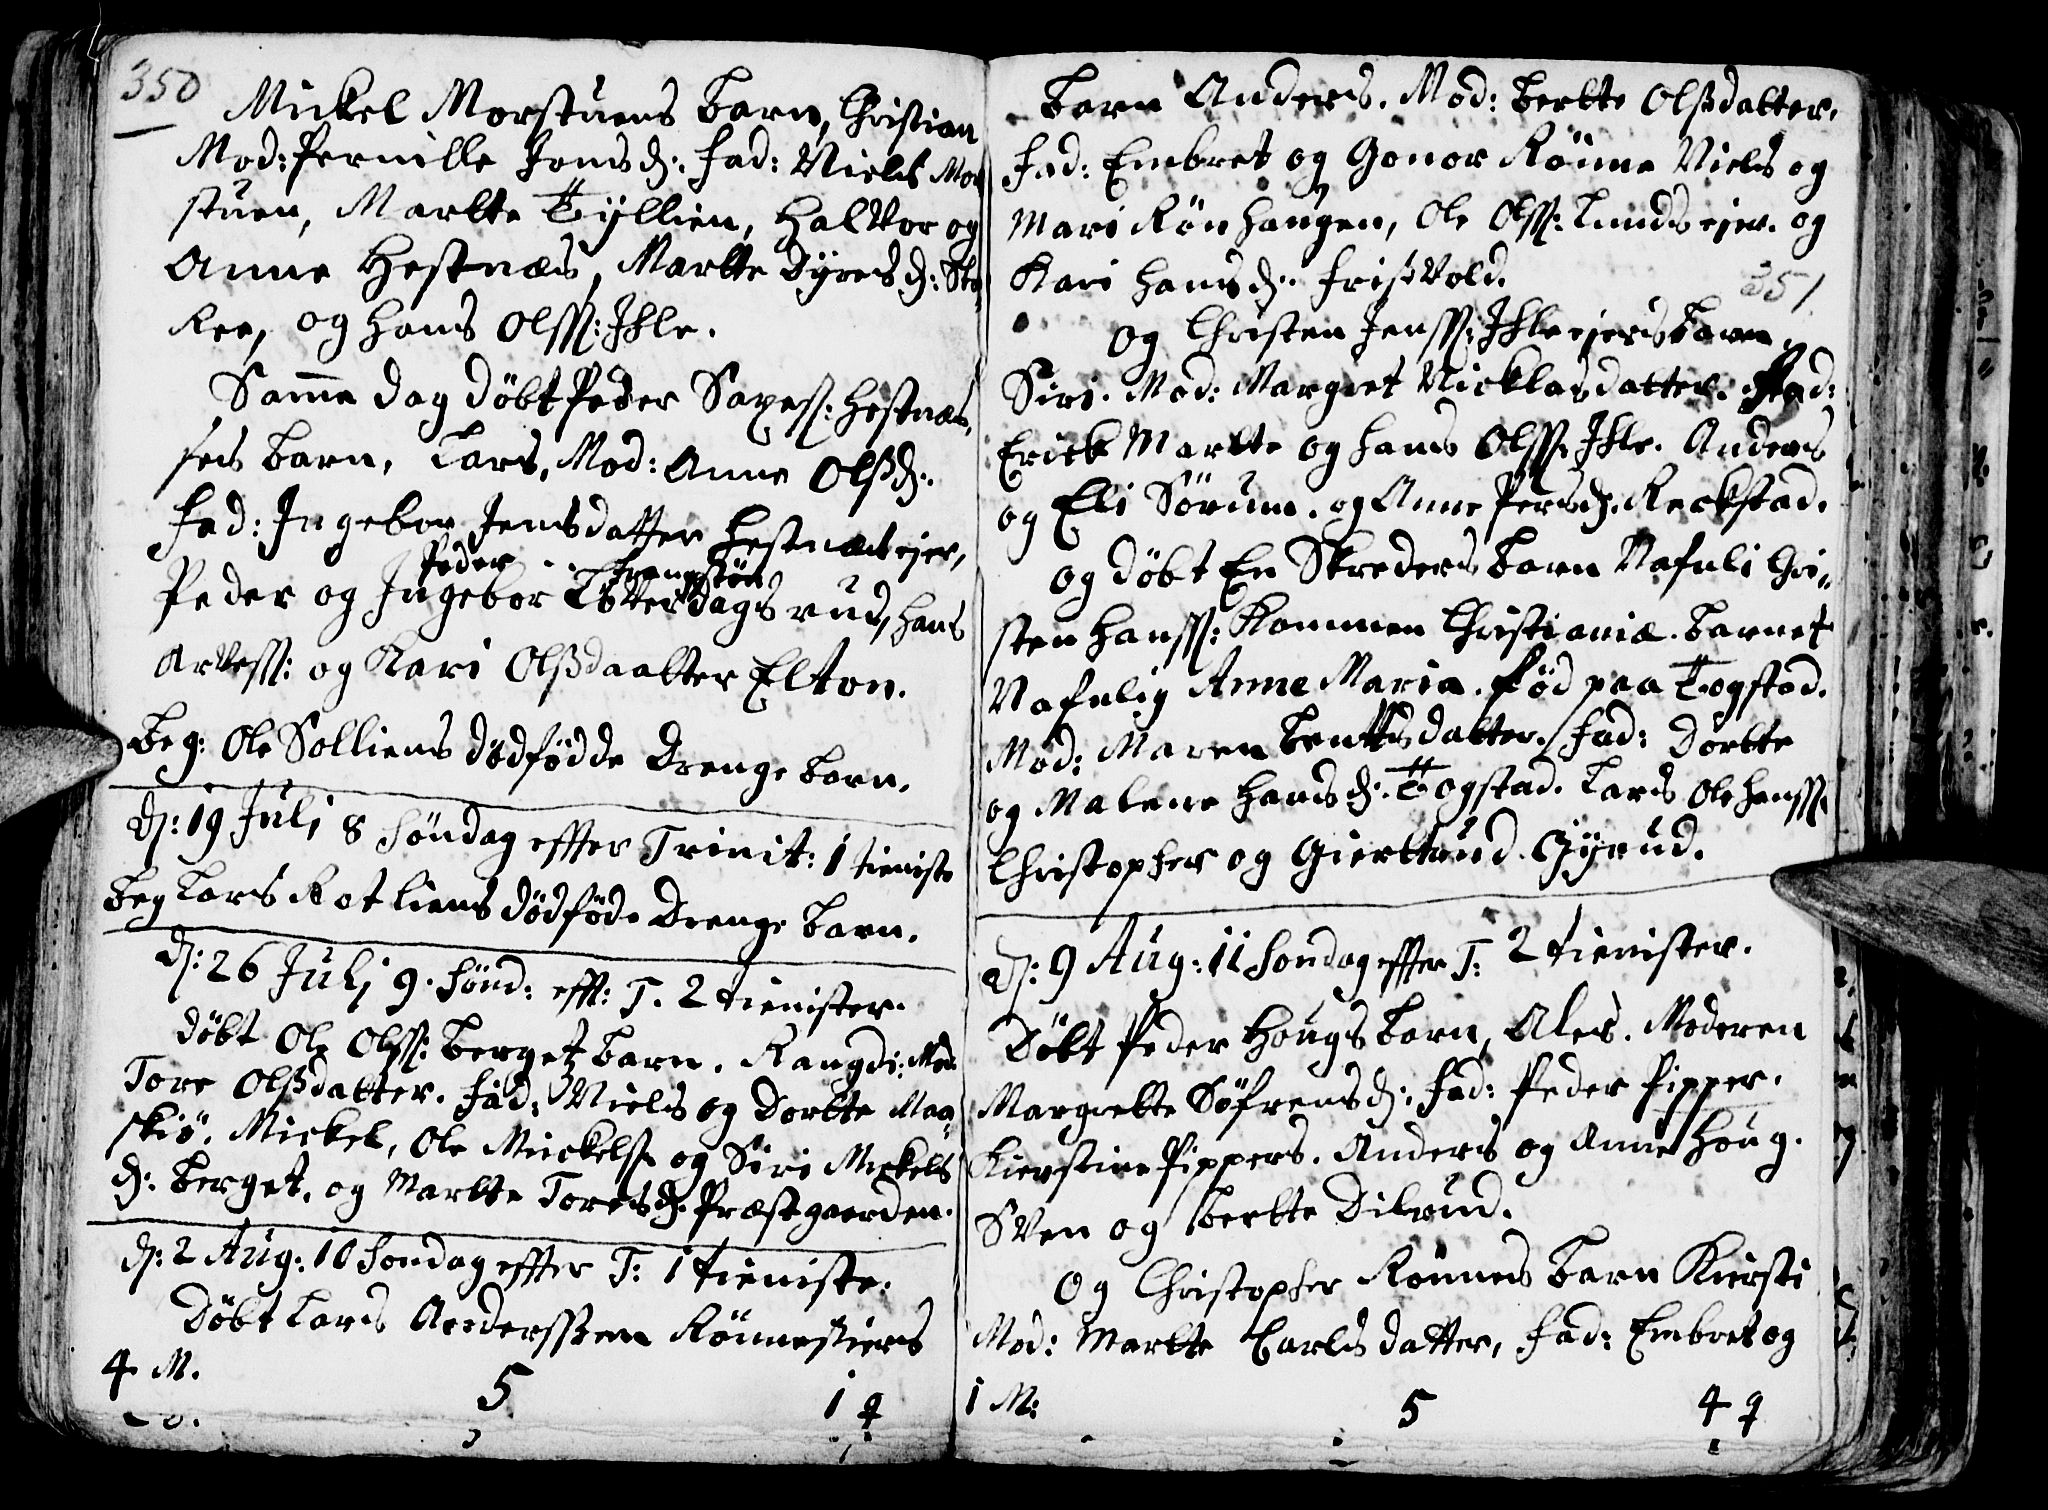 350
Mickel Morstuens Barn, Christian
Mod: Pernille Jons D: Fad: Niels Mor
stuen, Martte Tyllien, Halvor og
Anne Hestnæs, Martte Dyres D: Sto
Kee, og Hans Olss: Ihle.
Samme dag döbt Peder Saxess: Hestnæs,
ses Barn, Lars, Mod: Anne Olsd:
Fad: Ingebor Jensdatter Hestnæsejer,
Peder Frengstön
Peder og Ingebor Loverdagsrud, Hans
Arvess: og Kari Olsdaatter Elton.
Beg: Ole Solliens dödfödde Drenge Barn.
D: 19 Julj 8 Söndag effter Trinit: 1 tieniste
Beg Lars Rotliens dödföde Drenge Barn.
D: 26 Julj 9. Sönd: efft: T. 2 tienister.
döbt Ole Olss: Berget Barn. Rangdi: Mod
Tore Olsdatter. Fad: Niels og Dortte Maa,
skiö. Mickel, Ole Mickelss og Siri Mickels
D: Berget. og Martte Tores D. Præstgaarden.
D: 2 Aug: 10 Sondag effter T: 1 tieniste.
Döbt Lars Anderssen Rönnesiers
4 M. 5 1 q
Barn Anders. Mod: Bertte Olsdatter.
Fad: Embret og Gonor Rönne Niels og
Mari Rönhaugen, Ole Olss: Lundsejer. og
Kari Hans D: Frisvold.
351
og Christen Jenss: Ihle ejers Barn,
Siri. Mod: Margret Nicklasdatter. Fad:
Erick Martte og Hans Olss. Ihle. Anders
og Eli Sörum. og Anne Pers D. Reckstad.
og döbt En Skreders Barn Nafnli Chri,,
sten Hanss: Kommen Christianiæ. Barnet
Nafnlig Anne Maria. Föd paa Togstad.
Mod: Maren Bentsdatter. Fad: Dortte
og Malene Hans D. Togstad. Lars Ole Hanss.
Christopher og Gierttrud. Gyrud.
D: 9 Aug: 11 Sondag effter T: 2 tienister.
Döbt Peder Hougs Barn, Ales. Moderen
Margrette Söfrens D: Fad: Peder Pipper.
Kierstine Pippers. Anders og Anne Houg.
Sven og Bertte Dilrud.
Og Christopher Rönnes Barn Kiersti
Mod: Martte Carlsdatter, Fad: Embret og
1 M: 5 4 q